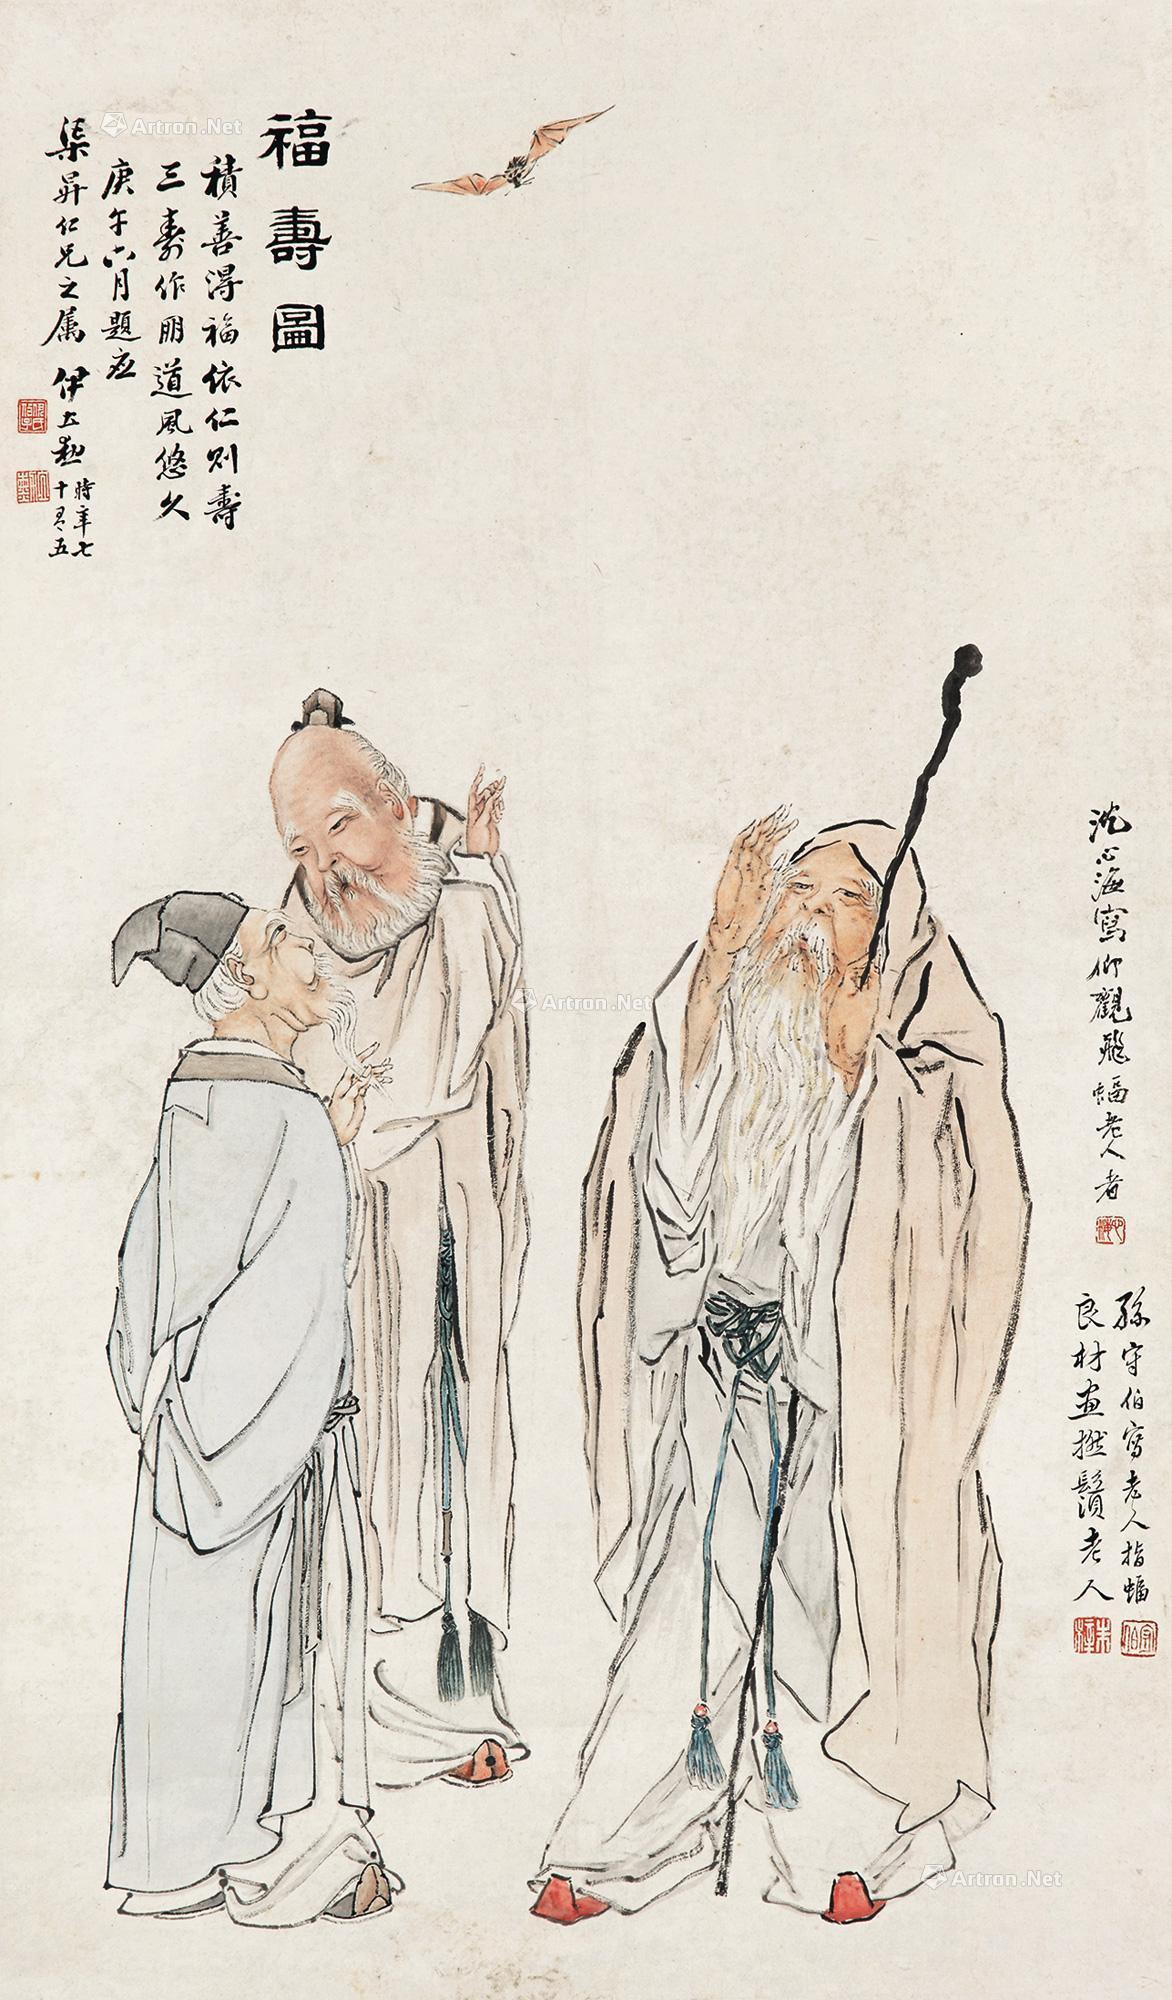 福壽圖
積善得福依仁則壽
三壽作朋道風悠久
庚午六月題应
渠昇仁兄之属 伊立勲
時年七
十有五
沈心海寫仰觀飛蝠老人者
孫守伯寫老人指蝠
良材畫撚鬚老人
Artron.Net
Artron.Net
Artron.Net